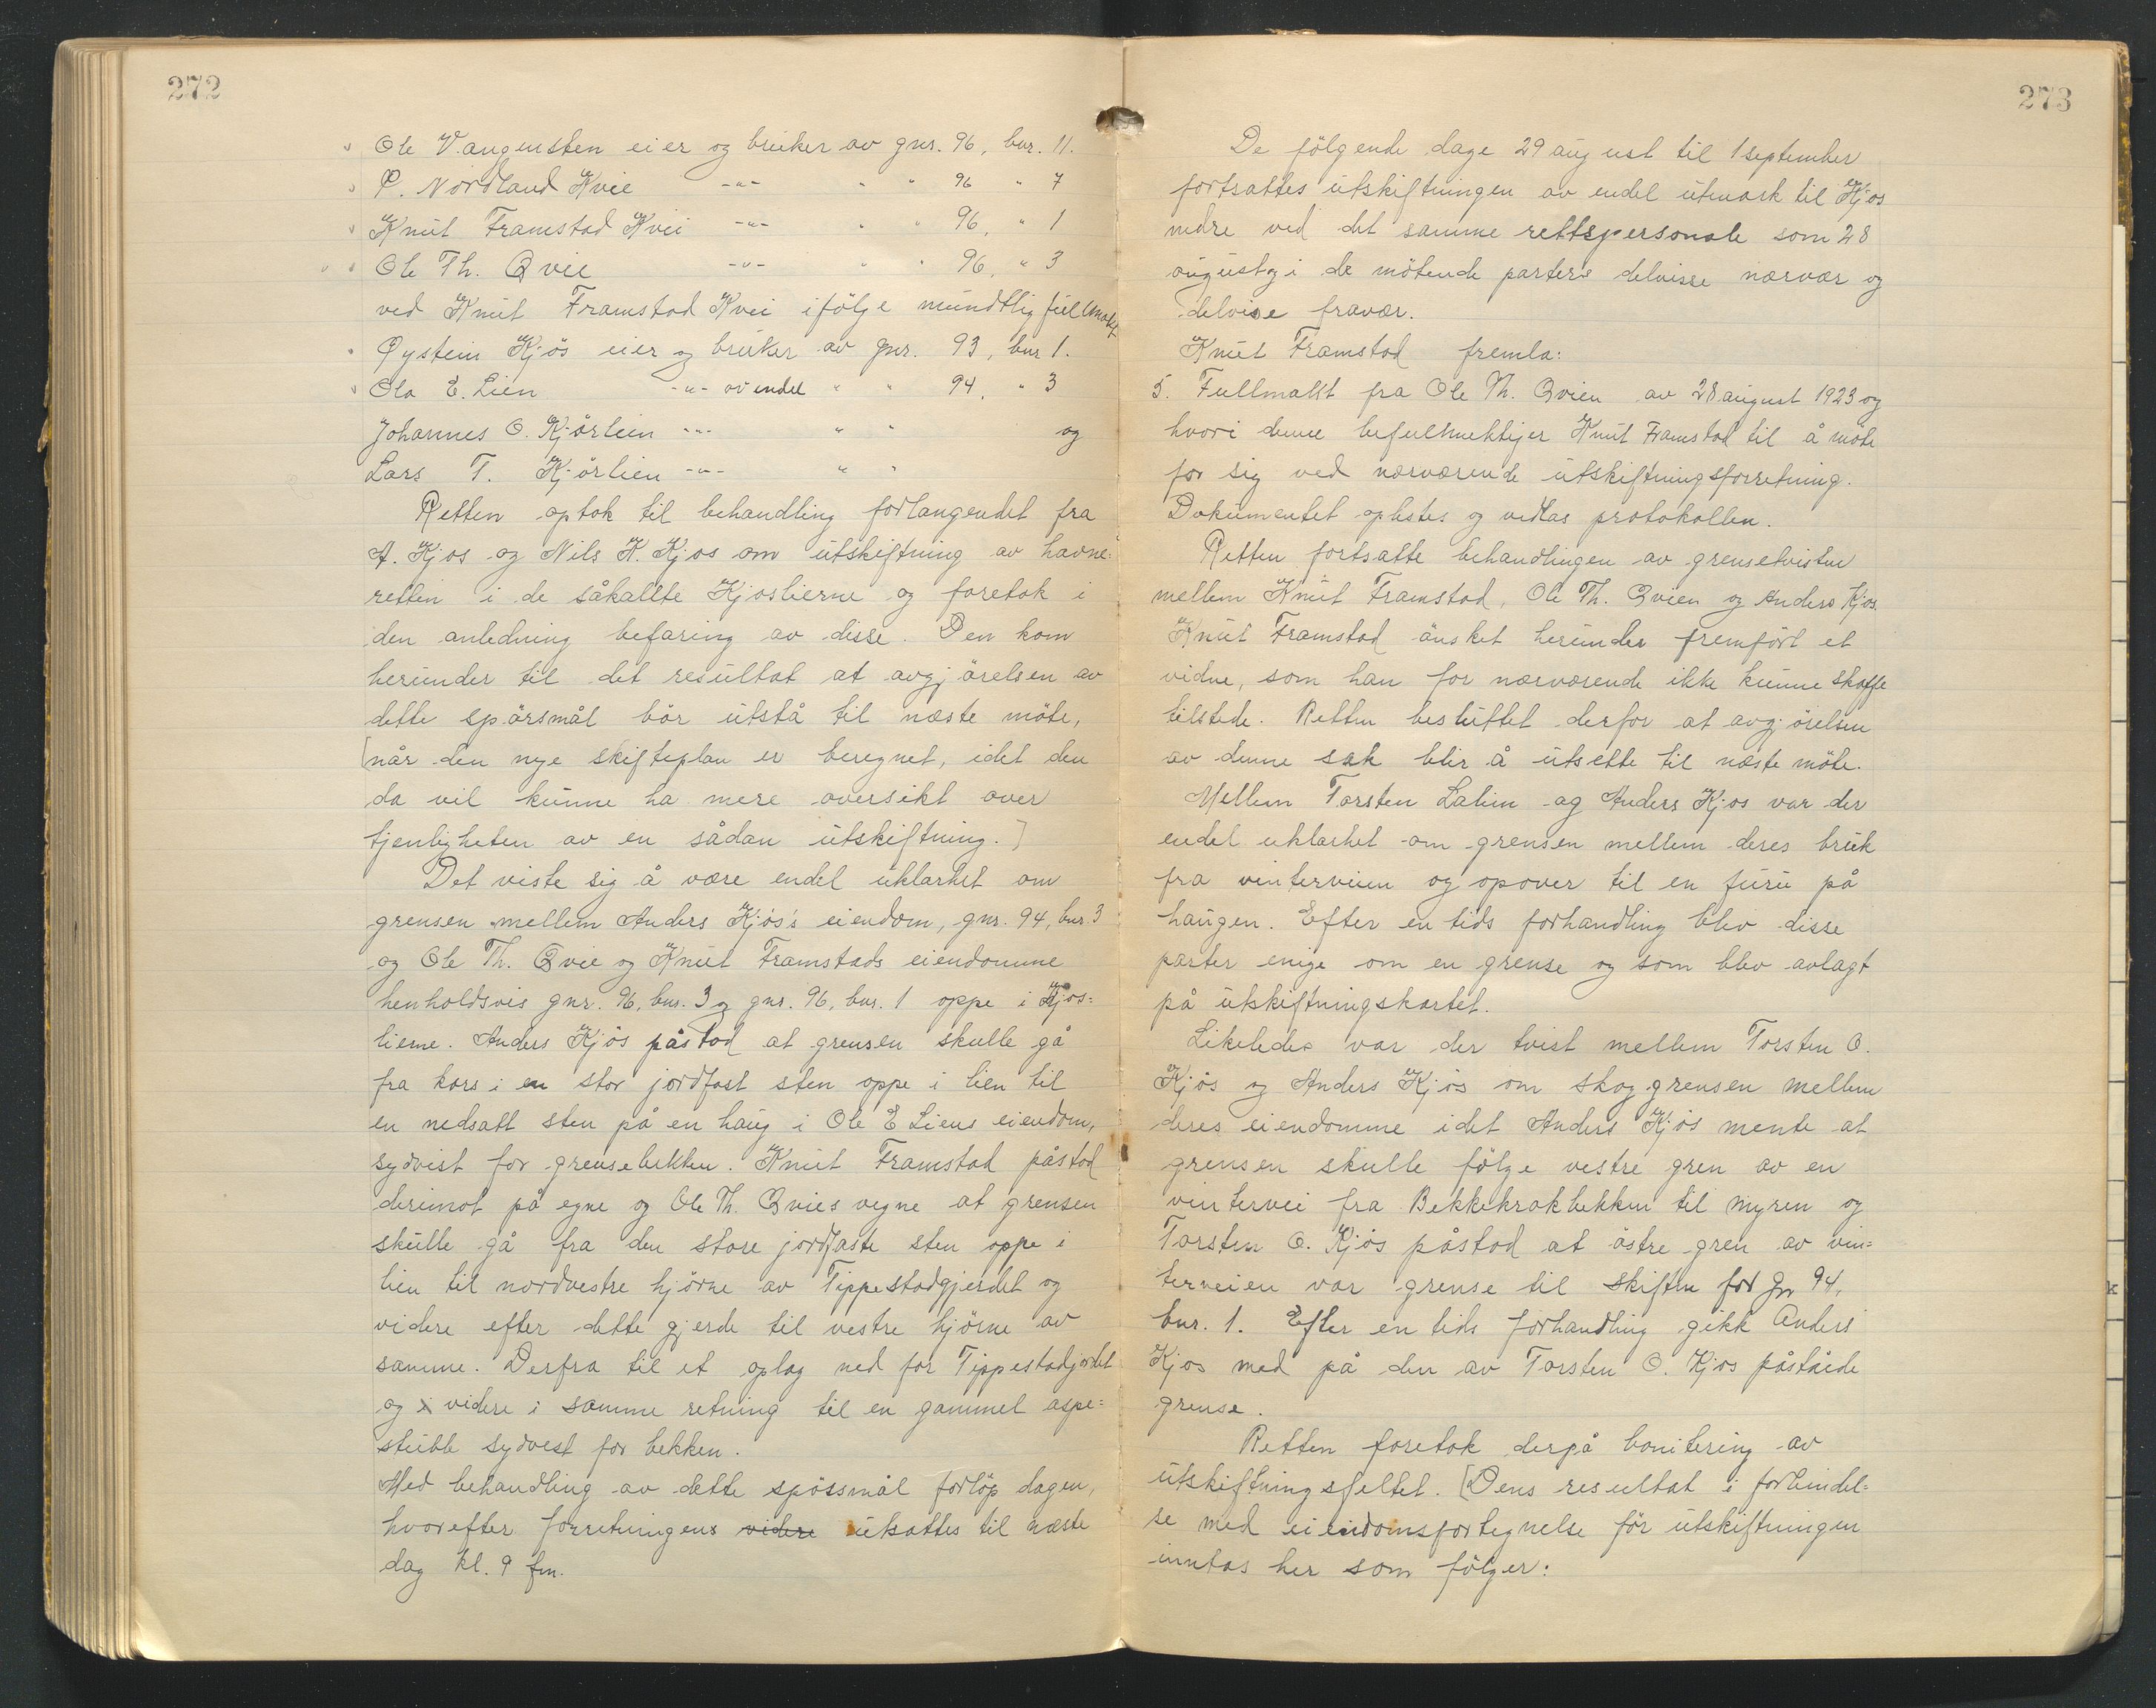 272
Ole Vangensten eier og bruker av gnr. 96, bnr. 11.
P. Nordland Kvie -"- " " 96 " 7
Knut Framstad Kvie -"- " " 96, " 1
Ole Th. Qvie -"- " " 96, " 3
ved Knut Framstad Kvie ifölge mundtlig fullmakt
Öystein Kjös eier og bruker av gnr. 93, bnr 1.
Ola E. Lien -"- av endel " " 94, " 3
Johannes O. Kjörlien -"- " " og
Lars T. Kjörlien -"- " "
Retten optok til behandling forlangendet fra
A. Kjos og Nils K. Kjos om utskiftning av havne=
retten i de såkallte Kjoslierne og foretok i
den anledning befaring av disse. Den kom
herunder til det resultat at avgjörelsen av
dette spörsmål bör utstå til næste möte,
[når den nye skifteplan er beregnet, idet den
da vil kunne ha mere oversikt over
tjenligheten av en sådan utskiftning.]
Det viste sig å være endel uklarhet om
grensen mellem Anders Kjös's eiendom, gnr. 94, bnr. 3
og Ole Th. Qvie og Knut Framstads eiendomme
henholdsvis gnr. 96, bnr. 3 og gnr. 96, bnr. 1 oppe i Kjos=
lierne. Anders Kjös påstod at grensen skulle gå
fra kors i en stor jordfast sten oppe i lien til
en nedsatt sten på en haug i Ole E Liens eiendom,
sydvist for grensebekken. Knut Framstad påstod
derimot på egne og Ole Th. Qvies vegne at grensen
skulle gå fra den store jordfaste sten oppe i
lien til nordvestre hjörne av Tippestadgjerdet og
videre efter dette gjerde til vestre hjörne av
samme. Derfra til et oplag ned for Tippestadjordet
og i videre i samme retning til en gammel aspe=
stubb sydvest for bekken.
Med behandling av dette spössmål forlöp dagen,
hvorefter forretningens videre utsattes til næste
dag kl. 9 fm.
273
De fölgende dage 29 august til 1 september
fortsattes utskiftningen av endel utmark til Kjos
nedre ved det samme rettspersonale som 28
august og i de mötende parters delvisse nærvær og
delvise fravær.
Knut Framstad fremla:
5. Fullmakt fra Ole Th. Qvien av 28 august 1923 og
hvori denne befullmektiger Knut Framstad til å möte
for sig ved nærværende utskiftningsforretning.
Dokumentet oplestes og vedlas protokollen.
Retten fortsatte behandlingen av grensetvisten
mellem Knut Framstad, Ole Th. Qvien og Anders Kjos.
Knut Framstad önsket herunder fremfört et
vidne, som han for nærværende ikke kunne skaffe
tilstede. Retten besluttet derfor at avgjörelsen
av denne sak blir å utsette til næste möte.
Mellem Torsten Lalim og Anders Kjos var der
endel uklarhet om grensen mellem deres bruk
fra vinterveien og opover til en furu på
haugen. Efter en tids forhandling blev disse
parter enige om en grense og som blev avlagt
på utskiftningskartet.
Likeledes var der tvist mellem Torsten O.
Kjös og Anders Kjös om skoggrensen mellem
deres eiendomme idet Anders Kjös mente at
grensen skulle fölge vestre gren av en
vintervei fra Bekkekrokbekken til myren og
Torsten O. Kjös påstod at östre gren av vin=
terveien var grense til skiften for gn 94,
bnr. 1. Efter en tids forhandling gikk Anders
Kjos med på den av Torsten O. Kjos påståede
grense.
Retten foretok derpå bonitering av
utskiftningsfeltet. [Dens resultat i forbindel=
se med eiendomsfortegnelse för utskiftningen
inntas her som fölger: